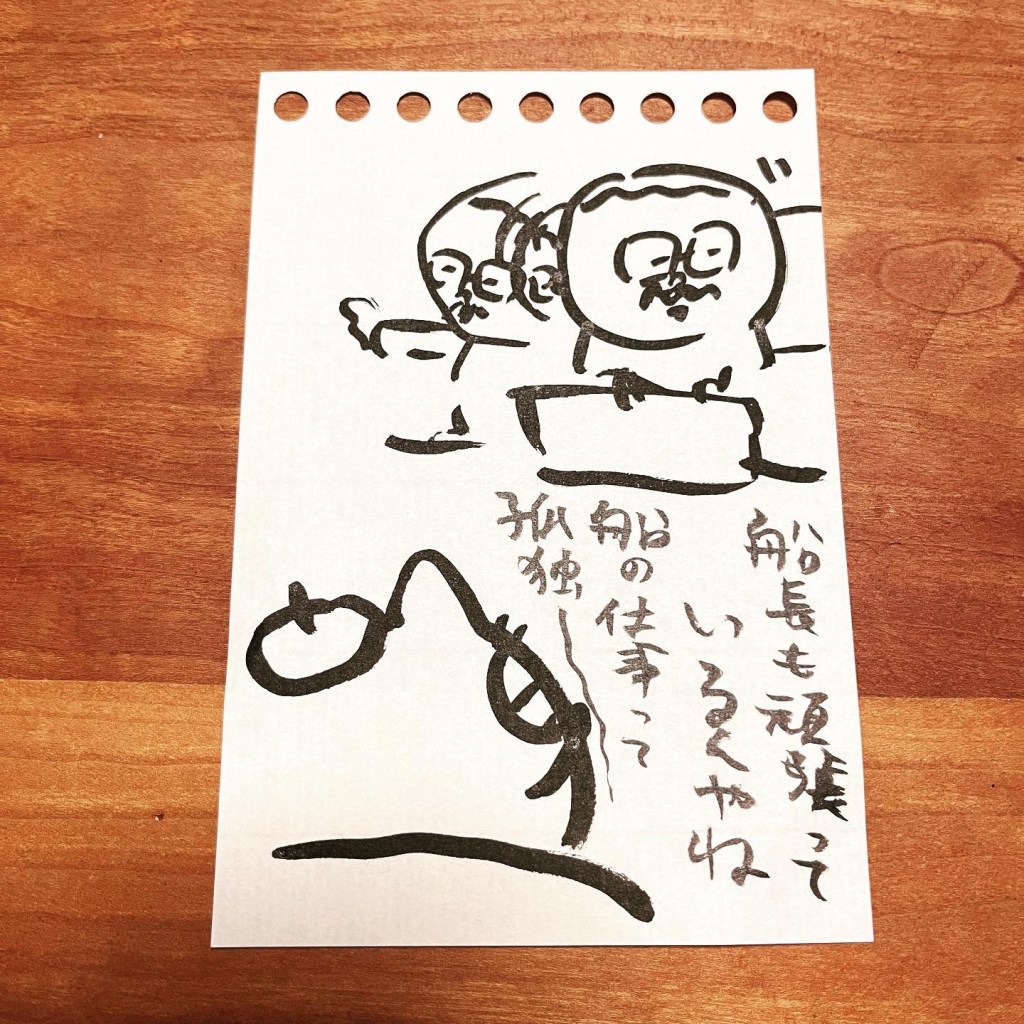 船長も頑張って
いるんやね
船の仕事って
孤独〜